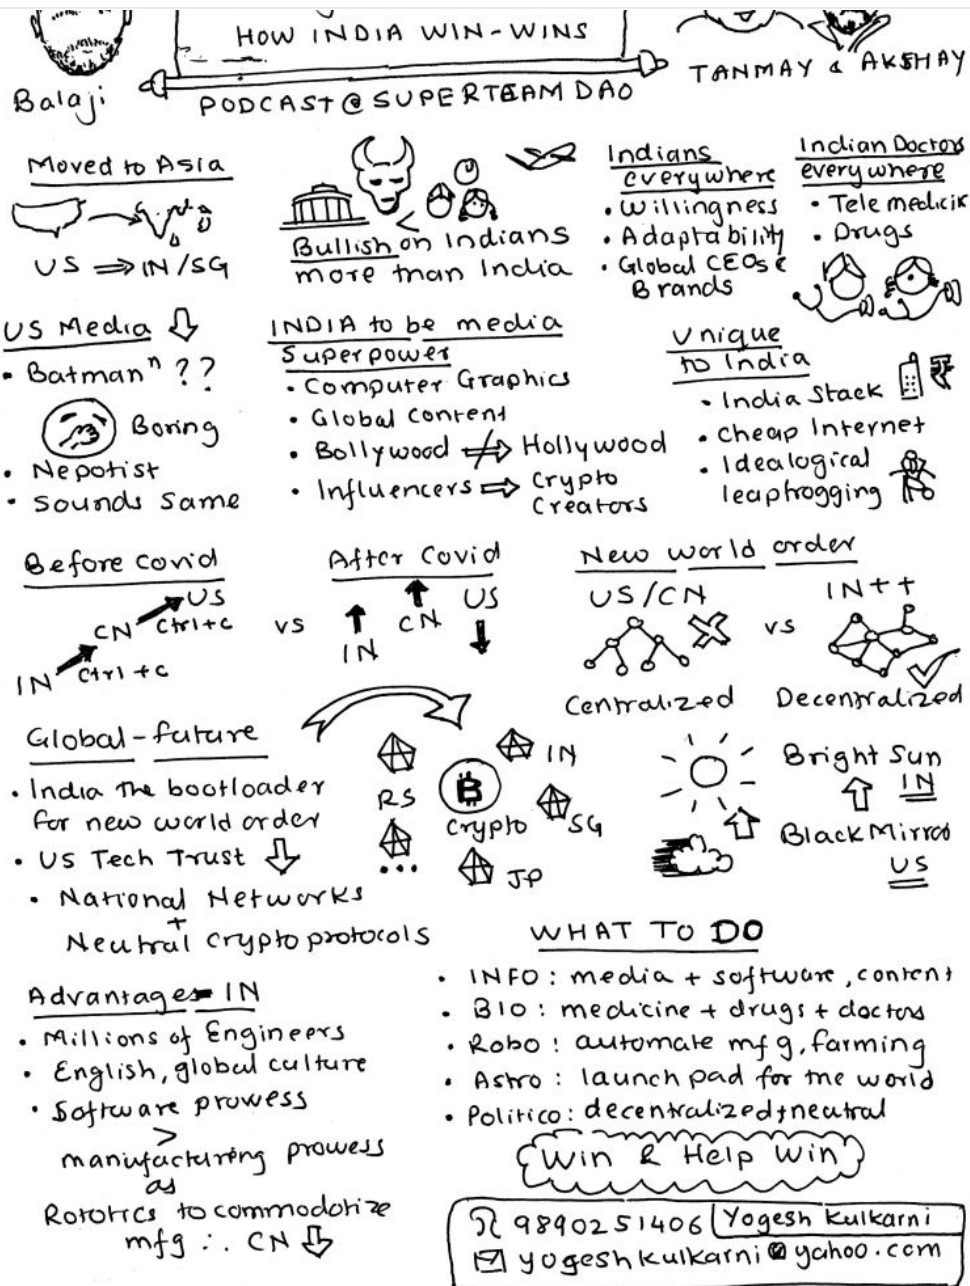 HOW INDIA WIN-WINS
Balaji
PODCAST @ SUPERTEAM DAO
TANMAY & AKSHAY
Moved to Asia
US ⇒ IN/SG
Bullish on Indians
more than India
Indians
everywhere
• Willingness
• Adaptability
• Global CEOs &
Brands
Indian Doctors
everywhere
• Tele medicin
• Drugs
US Media ⇩
• Batmanⁿ ??
Boring
• Nepotist
• Sounds Same
INDIA to be media
Superpower
• Computer Graphics
• Global Content
• Bollywood ⇏ Hollywood
• Influencers ⇒ Crypto
Creators
Unique
to India
• India Stack ₹
• Cheap Internet
• Idealogical
leapfrogging
Before Covid
US
CN Ctrl+C
IN Ctrl+C
vs
After Covid
IN CN US
New world order
US/CN vs IN++
Centralized Decentralized
Global-future
• India the bootloader
for new world order
• US Tech Trust ⇩
• National Networks
+
Neutral crypto protocols
RS
B
Crypto
IN
SG
JP
...
Bright Sun
IN
⇧
Black Mirror
US
Advantages IN
• Millions of Engineers
• English, global culture
• Software prowess
>
manufacturing prowess
as
Rototics to commodotize
mfg ∴ CN ⇩
WHAT TO DO
• INFO: media + software, content
• BIO: medicine + drugs + doctors
• Robo: automate mfg, farming
• Astro: launch pad for the world
• Politico: decentralized+neutral
Win & Help Win
9890251406 Yogesh Kulkarni
yogeshkulkarni@yahoo.com